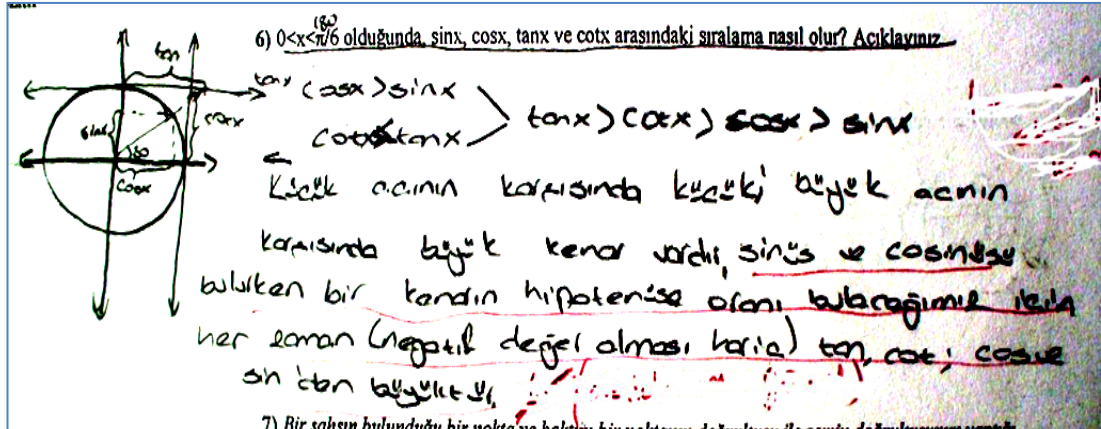 180
6) 0<x<π/6 olduğunda, sinx, cosx, tanx ve cotx arasındaki sıralama nasıl olur? Açıklayınız
tan
tanx
cosx>sinx
cotx
sinx
cotx tanx
tanx > cotx > cosx > sinx
60
cosx
Küçük acının karşısında küçük; büyük acnın
karşısında büyük kenar vardır, sinüs ve cosinüsü
bulurken bir kenarın hipotenüse oranı bulacağımız için
her zaman (negatif değer olması hariç) tan, cot; cos ve
sin 'den büyüktür.
7) Bir şahsın bulunduğu bir nokta ve